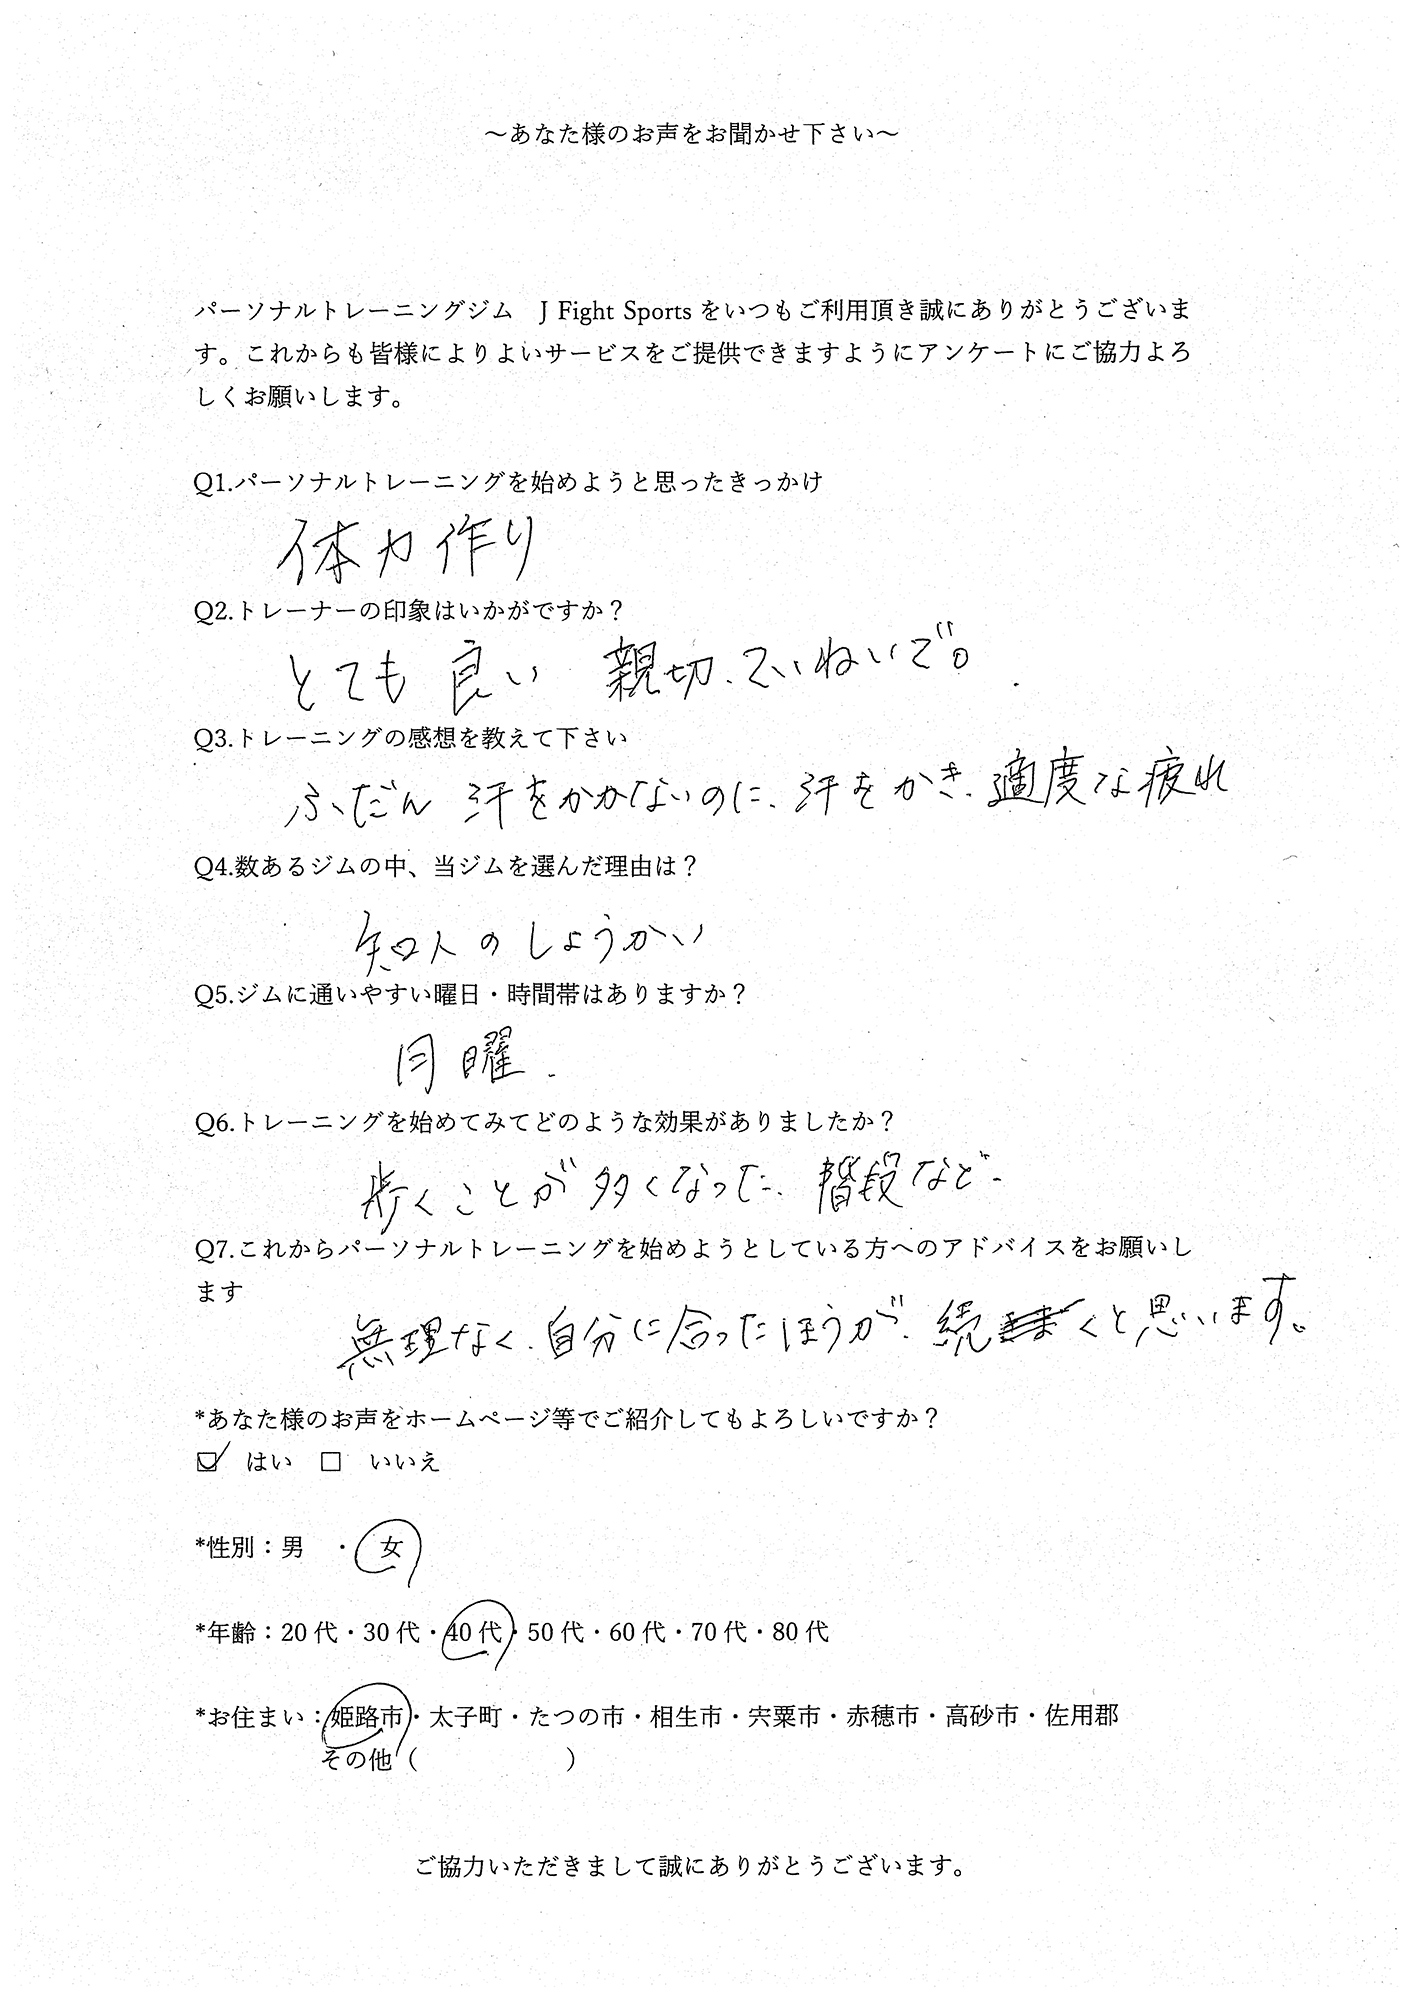 ～あなた様のお声をお聞かせ下さい～
パーソナルトレーニングジム　J Fight Sports をいつもご利用頂き誠にありがとうございま
す。これからも皆様によりよいサービスをご提供できますようにアンケートにご協力よろ
しくお願いします。
Q1.パーソナルトレーニングを始めようと思ったきっかけ
体力作り
Q2.トレーナーの印象はいかがですか？
とても良い　親切、ていねいで。
Q3.トレーニングの感想を教えて下さい
ふだん 汗をかかないのに、汗をかき、適度な疲れ
Q4.数あるジムの中、当ジムを選んだ理由は？
知人のしょうかい
Q5.ジムに通いやすい曜日・時間帯はありますか？
月曜.
Q6.トレーニングを始めてみてどのような効果がありましたか？
歩くことが多くなった、階段など、
Q7.これからパーソナルトレーニングを始めようとしている方へのアドバイスをお願いし
ます
無理なく、自分に合ったほうが、続くと思います。
*あなた様のお声をホームページ等でご紹介してもよろしいですか？
☑　はい　□　いいえ
*性別：男　・　女
*年齢：20 代・30 代・40 代・50 代・60 代・70 代・80 代
*お住まい：姫路市・太子町・たつの市・相生市・宍粟市・赤穂市・高砂市・佐用郡
その他（　　　　　　）
ご協力いただきまして誠にありがとうございます。